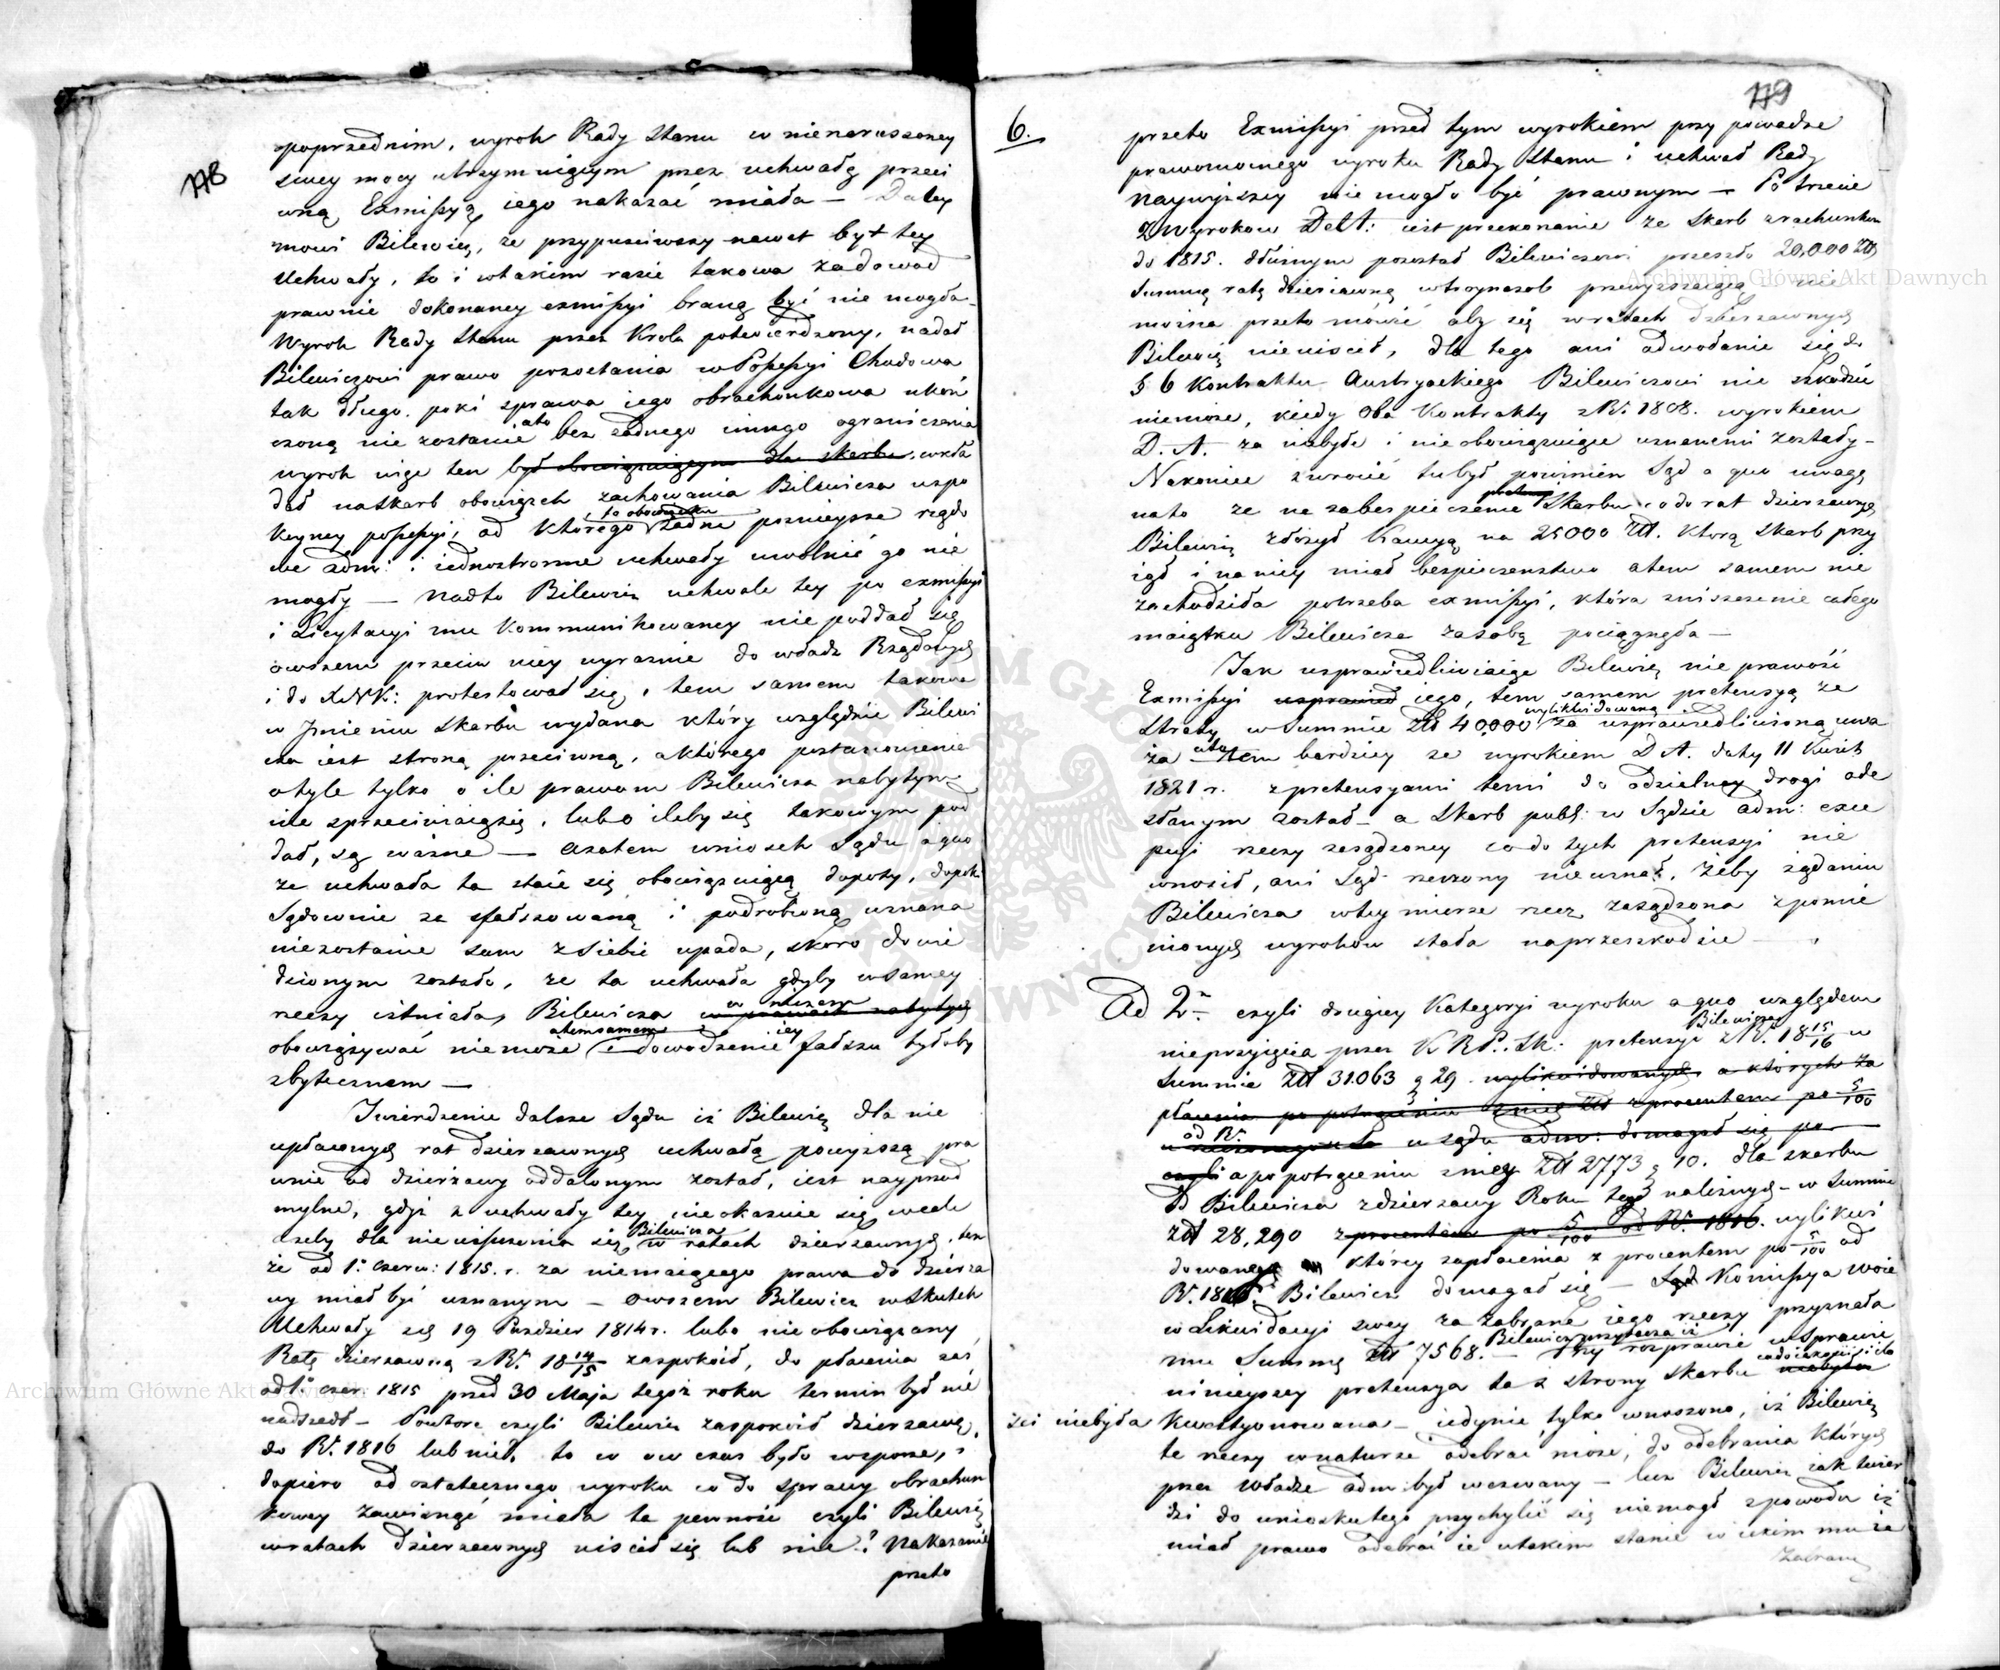 178
poprzednim, wyrok Rady Stanu w nienaruszoney
swey mocy utrzymuiącym przez uchwałę przeci
wną Exmissyą iego nakazać miała — Daley
mowi Bilewicz, że przypuściwszy nawet byt tey
Uchwały, to i wtakim razie takowa za dowod
prawnie dokonaney exmissyi braną być nie mogła —
Wyrok Rady Stanu przez Krola potwierdzony, nadał
Bilewiczowi prawo pozostania w Possessyi Chudowa
tak długo. poki sprawa iego obrachonkowa ukoń
czoną nie zostanie ato bez żadnego innego ograniczenia
wyrok więc ten był obowiązuiącym dla skarbu, wkła
dał naskarb obowiązek zachowania Bilewicza wspo
koyney possessyi, od ktorego to obowiązku żadne poznieysze rządo
we adm: i iednostronne uchwały uwolnić go nie
mogły — Nadto Bilewicz uchwale tey po exmissyi
i Licytacyi mu kommunikowaney nie poddał się
owszem przeciw niey wyraznie do władz Rządowych
i do XNK: protestował się, tem samem takowa
w Jmieniu Skarbu wydana który względnie Bilewi
cza iest stroną przeciwną, a którego postanowienie
otyle tylko o ile prawom Bilewicza nabytym
nie sprzeciwiaiąsię, lub o ileby się takowym pod
dał, są ważne — azatem wniosek Sądu a quo
że uchwała ta staie się obowiązuiącą dopoty, dopok
Sądownie za sfałszowaną i podrobioną uznana
niezostanie sam z siebie upada, skoro dowie
dzionym zostało, że ta uchwała gdyby w samey
rzeczy istniała, Bilewicza w niczem w prawach nabytych
obowiązywać niemoże atemsamem i dowodzenie iey fałszu byłoby
zbytecznem —
Twierdzenie dalsze Sądu iż Bilewicz dla nie
upłaconych rat dzierzawnych uchwałą powyższą pra
wnie od dzierżawy oddalonym został, iest nayprzod
mylne, gdyż z uchwały tey nieokazuie się wcale
żeby dla nieuiszczenia się Bilewicza w ratach dzierzawnych, ten
że od 1. Czerw: 1815. r. za niemaiącego prawa do dzierża
wy miał być uznanym — owszem Bilewicz w skutek
Uchwały z 19 Pazdzier 1814 r. lubo nie obowiązany
Ratę dzierzawną z R. 18 14/15 zaspokoił, do płacenia zaś
od 1° czer. 1815 przed 30 Maja tegoż roku termin był nie
nadszedł — Powtore czyli Bilewicz zaspokoił dzierzawę
do R. 1816 lub nie, to w ow czas było w sporze,
dopiero od ostatecznego wyroku co do sprawy obrachun
kowey zawisnąć miała ta pewność czyli Bilewicz
w ratach dzierzawnych uiścił się lub nie? Nakazanie
przeto
179
6.
przeto Exmissyi przed tym wyrokiem przy powadze
prawomocnego wyroku Rady Stanu i uchwał Rady
Naywyższey nie mogło być prawnym — Potrzecie
z wyrokow Del.A: iest przekonanie że Skarb z rachunkow
do 1815. dłużnym pozostał Bilewiczowi przeszło 20,000 Zł
Summę ratę dzierżawną wtroynasob przewyższaiącą nie
można przeto mówić aby się w ratach dzierzawnych
Bilewicz nieuiścił, dla tego ani odwołanie się do
§ 6 kontraktu Austryackiego Bilewiczowi nie szkodzić
niemoże, kiedy Oba Kontrakty z R. 1808. wyrokiem
D. A. za nabyłe i nieobowiązuiące uznanemi zostały —
Nakoniec zwrocić tu był powinien Sąd a quo uwagę
na to że na zabezpieczenie pretensyi Skarbu co do rat dzierzawnych
Bilewicz złożył kaucyą na 25000 Zł. którą Skarb przy
iął i na niey miał bezpieczenstwo a tem samem nie
zachodziła potrzeba exmissyi, która zniszczenie całego
maiątku Bilewicza za sobą pociągnęła —
Tak usprawiedliwiaiąc Bilewicz nie prawość
Exmissyi usprawied iego, tem samem pretensyą ze
straty w summie Zł 40,000 wylikwidowaną za usprawiedliwioną uwa
ża ato tem bardziey że wyrokiem D A. daty 11 Kwiet:
1821 r. z pretensyami temi do oddzielney drogi ode
słanym został — a Skarb publ: w Sądzie Adm: exce
pcyi rzeczy zasądzoney co do tych pretensyi nie
wnosił, ani Sąd rzeczony nieuznał, żeby żądaniu
Bilewicza wtey mierze rzecz zasądzona z pomie
nionych wyroków stała na przeszkodzie —
Ad 2. czyli drugiey Kategoryi wyroku a quo względem
nieprzyięcia przez K R P. Sk: pretensyi Bilewicza z R. 18 15/16 w
Summie Zł 31.063 g 29. wylikwidowanych, a których za
płacenia po potrąceniu z niey Zł z procentem po 5/100
od R. w Sądu adm: domagał się po
czyli a po potrąceniu z niey Zł 2773 g 10. dla Skarbu
Od Bilewicza z dzierzawy Roku tegoż należnych — w Summie
Zł 28,290 z procentem po 5/100 od R. 1816. wylikwi
dowaney którey zapłacenia z procentem po 5/100 od
R. 1816. Bilewicz domagał się — Sąd Komissya Woie
w Likwidacyi swey za zabrane iego rzeczy przyznała
mu Summę Zł 7568. — Bilewicz przytacza iż Przy rozprawie w Sprawie
ninieyszey pretensya ta z strony Skarbu co do ilości niebyła
niebyła kwestyonowana — iedynie tylko wnoszono, iż Bilewicz
te rzeczy w naturze odebrać może, do odebrania których
przez Władze adm: był wezwany — lecz Bilewicz iak twier
dzi do wniosku tego przychylić się niemogł z powodu iż
miał prawo odebrać ie wtakim stanie w iakim mu ie
zabrano